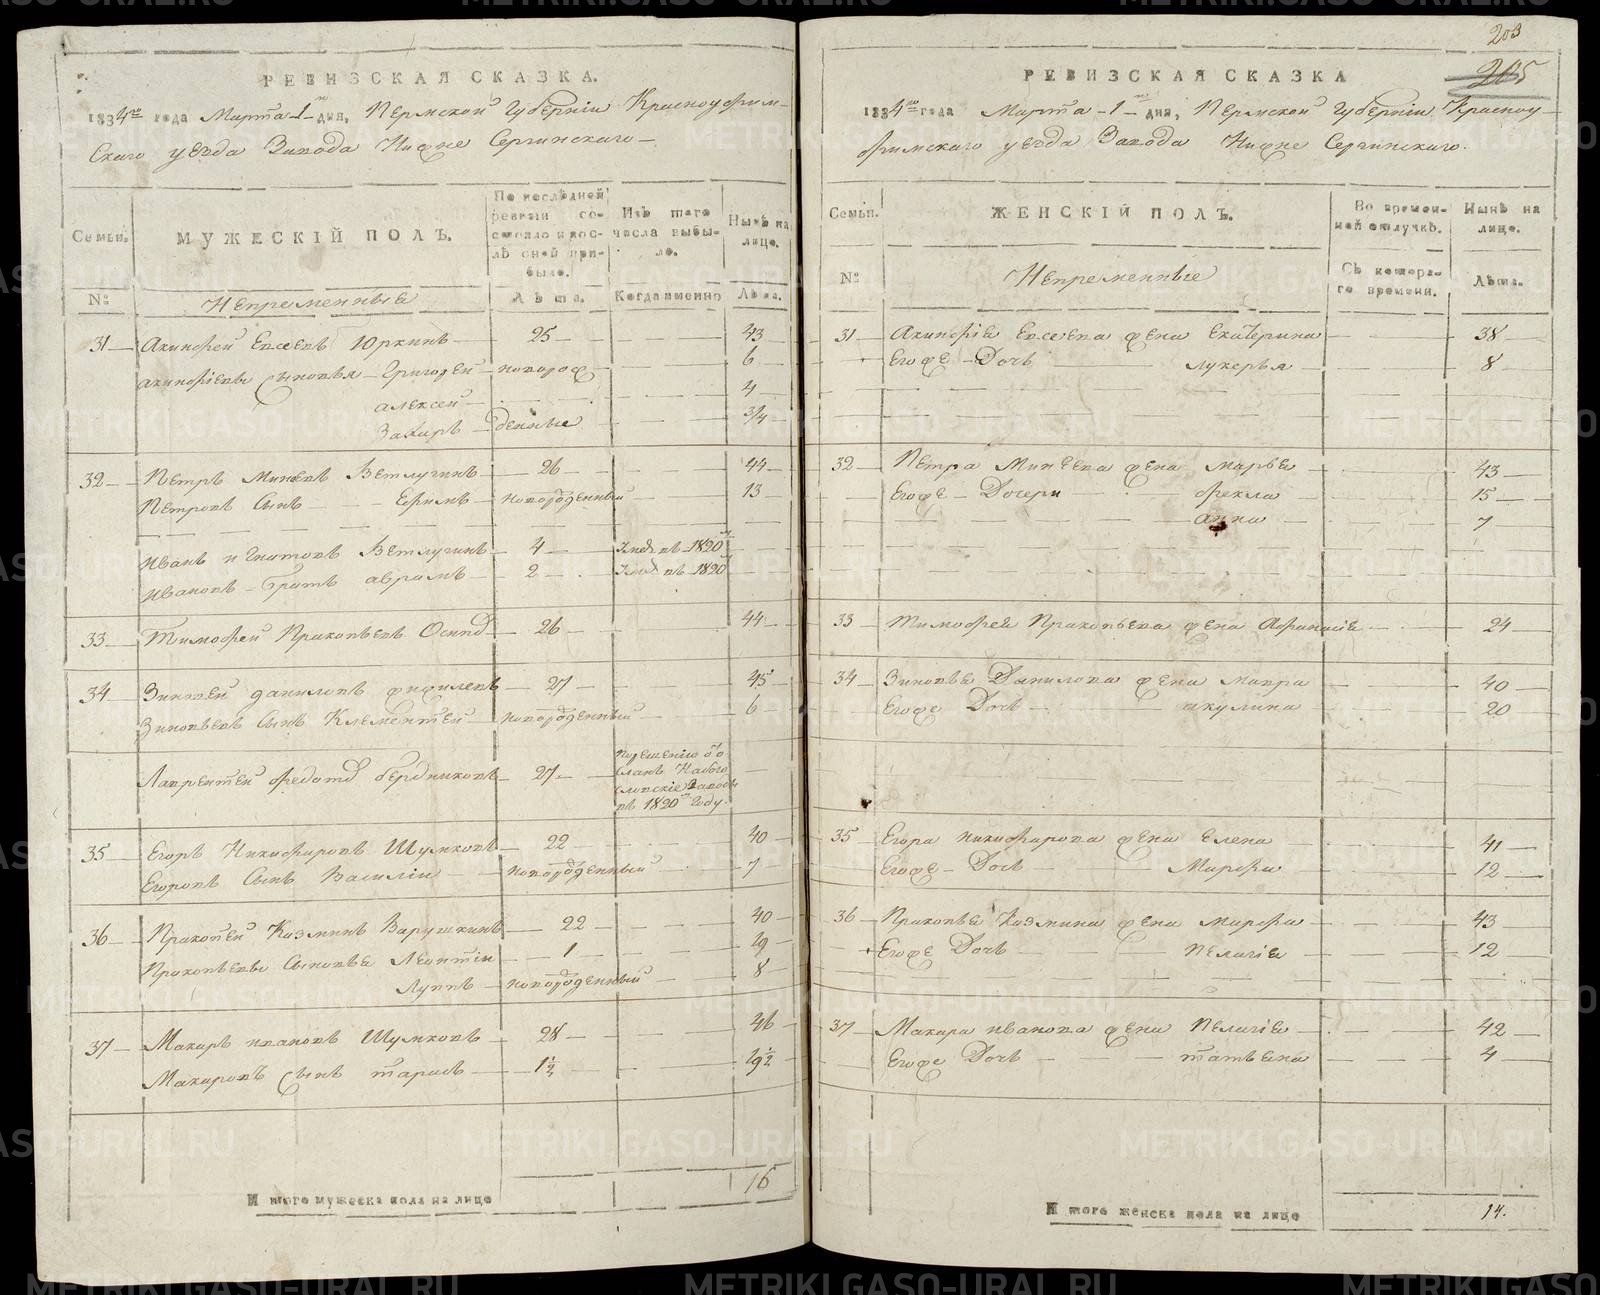 203
205
РЕВИЗСКАЯ СКАЗКА.
1834го года Марта 1го дня, Пермской Губернiи Красноуфим-
скаго уезда Завода Нижне Сергинскаго
Семьи.
МУЖЕСКIЙ ПОЛЪ.
По последней ревизiи состояло и после оной прибыло.
Изъ того числа выбыло.
Ныне на лице.
№
Непременные
Лета.
Когда именно
Лета.
31 Акинфей Евсеевъ Юркинъ 25 43
Акинфiевы сыновья Григорей новорож 6
Алексей 4
Захаръ денные 3/4
32 Петръ Минеевъ Ветлугинъ 26 44
Петровъ Сынъ Ефимъ новорожденный 13
Иванъ Игнатовъ Ветлугинъ 4 въ 1820м
Ивановъ братъ Аврамъ 2 въ 1820
33 Тимофей Прокопьевъ 26 44
34 Зиновей Даниловъ 27 45
Зиновьевъ Сынъ Клементей новорожденный 6
Лаврентей Федотовъ Бердниковъ 27
въ 1820м Году.
35 Егоръ Никифаровъ Шумковъ 22 40
Егоровъ Сынъ Василiи новорожденный 7
36 Пракопей Казминъ Варушкинъ 22 40
Прокопьевы Сыновье Леонтiи 1 19
Луппъ новорожденный 8
37 Макаръ Ивановъ Шумковъ 28 46
Макаровъ Сынъ Тарасъ 1 1/2 19 1/2
Итого мужеска пола на лице 16
РЕВИЗСКАЯ СКАЗКА
1834го года Марта 1го дня, Пермской Губернiи Красноу-
фимскаго уезда Завода Нижне Сергинскаго.
Семьи.
ЖЕНСКIЙ ПОЛЪ.
Во временной отлучке.
Ныне на лице.
№
Непременные
Съ котораго времени.
Лета.
31 Акинфiя Евсеева жена Екатерина 38
Егоже Дочь Лукерья 8
32 Петра Минеева жена Марья 43
Егоже Дочери Фекла 15
Анна 7
33 Тимофея Пракопьева жена Афанасiя 24
34 Зиновья Данилова жена Мавра 40
Егоже Дочь Акулина 20
35 Егора Никифарова жена Елена 41
Егоже Дочь Марфа 12
36 Пракопья Казмина жена Марфа 43
Егоже Дочь Пелагiя 12
37 Макара Иванова жена Пелагiя 42
Егоже Дочь Татьяна 4
Итого женска пола на лице 14.
METRIKI.GASO-URAL.RU